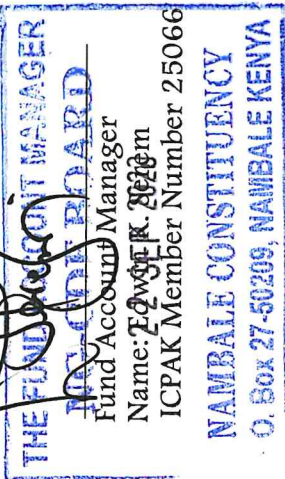 THE FUND ACCOUNT MANAGER
NG-CDF BOARD
Fund Account Manager
Name: Edwin K.
22 SEP 2020
ICPAK Member Number 25066
NAMBALE CONSTITUENCY
O. Box 27-50209, NAMBALE KENYA